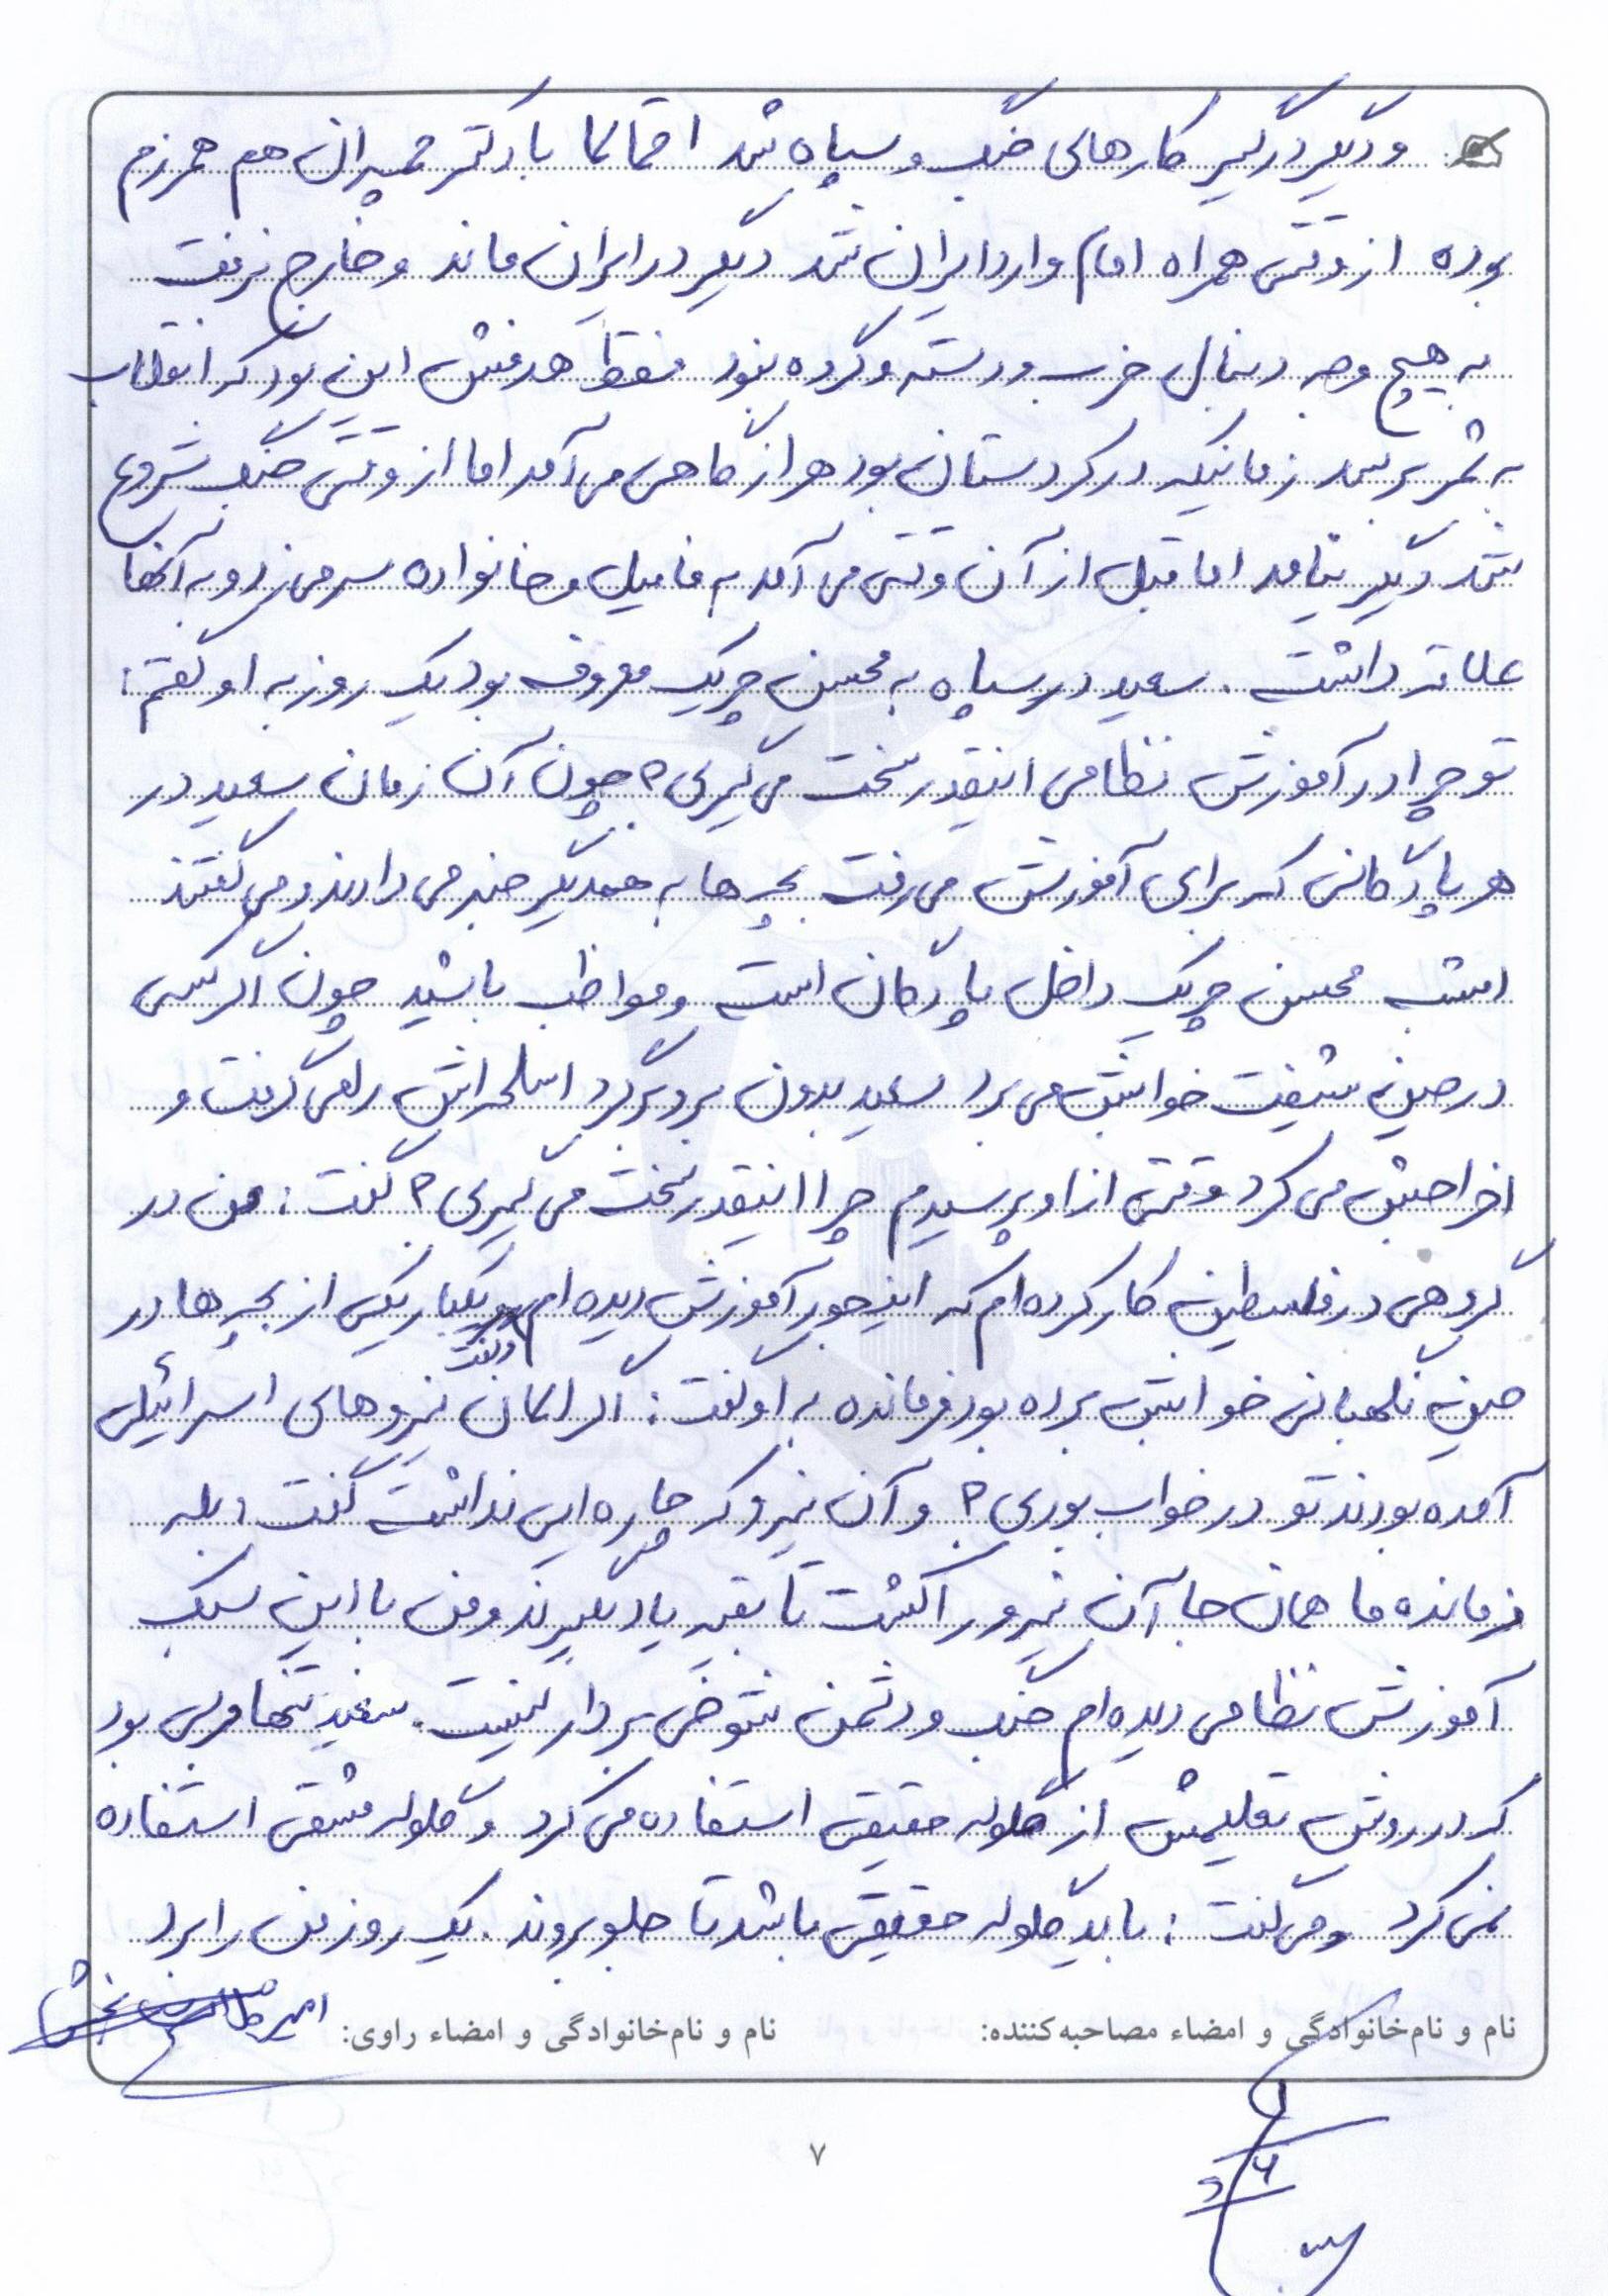 و دیگر درگیر کارهای جنگ و سپاه شد احتمالا با دکتر چمران هم همرزم
بوده از وقتی همراه امام وارد ایران شد دیگر در ایران ماند و خارج نرفت
به هیچ وجه دنبال حزب و دسته و گروه نبود فقط هدفش این بود که انقلاب
به ثمر برسد زمانیکه در کردستان بود هر از گاهی می آمد اما از وقتی جنگ شروع
شد دیگر نیامد اما قبل از آن وقتی می آمد به فامیل و خانواده سر می زد و به آنها
علاقه داشت. سعید در سپاه به محسن چریک معروف بود یک روز به او گفتم:
تو چرا در آموزش نظامی اینقدر سخت می گیری؟ چون آن زمان سعید در
هر پادگانی که برای آموزش می رفت بچه ها به همدیگر خبر می دادند و می گفتند
امشب محسن چریک داخل پادگان است و مواظب باشید چون اگر کسی
در حین شیفت خوابش می برد سعید بدون برو برگرد اسلحه اش را می گرفت و
اخراجش می کرد وقتی از او پرسیدم چرا اینقدر سخت می گیری؟ گفت: من در
گروهی در فلسطین کار کرده ام که اینجور آموزش دیده ام یکبار یکی از بچه ها در
حین نگهبانی خوابش برده بود فرمانده به او گفت: اگر الان نیروهای اسرائیلی
وقت
آمده بودند تو در خواب بودی؟ و آن نیرو که چاره ای نداشت گفت: بله
فرمانده ما همان جا آن نیرو را کشت تا بقیه یاد بگیرند و من با این سبک
آموزش نظامی دیده ام جنگ و دشمن شوخی بردار نیست. سعید تنها مربی بود
که در روش تعلیمش از گلوله حقیقی استفاده می کرد و گلوله مشقی استفاده
نمی کرد و می گفت: باید گلوله حقیقی باشد تا جلو بروند. یک روز من را برد
نام و نام‌خانوادگی و امضاء مصاحبه‌کننده:
نام و نام‌خانوادگی و امضاء راوی: امیر
۷